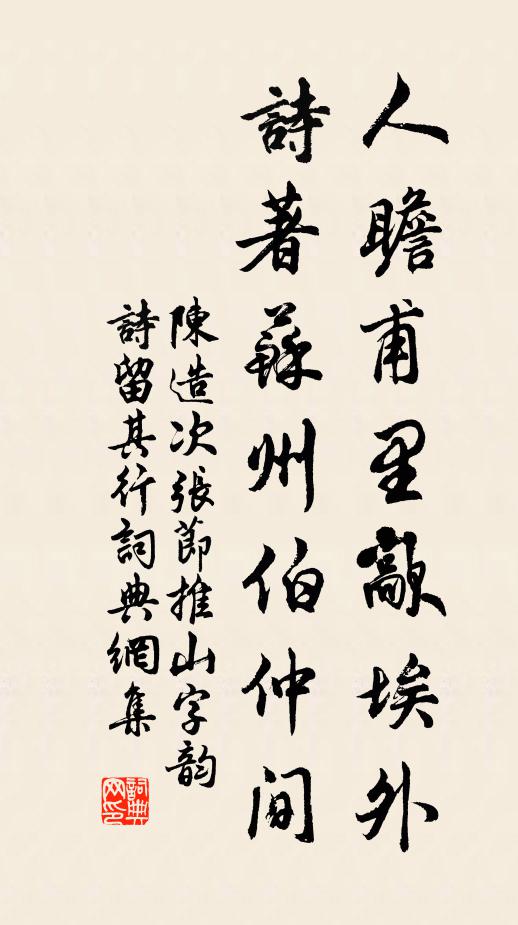 人瞻甫里歊埃外
詩著蘇州伯仲間
陳造次張節推山字韵
詩留其行詞典網集
詞典
网印